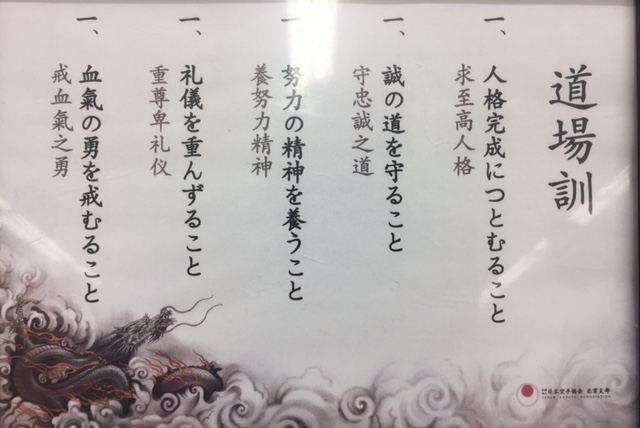 道場訓
一、人格完成につとむること
求至高人格
一、誠の道を守ること
守忠誠之道
一、努力の精神を養うこと
養努力精神
一、礼儀を重んずること
重尊卑礼仪
一、血氣の勇を戒むること
戒血氣之勇
日本空手協会 北京支部
JAPAN KARATE ASSOCIATION